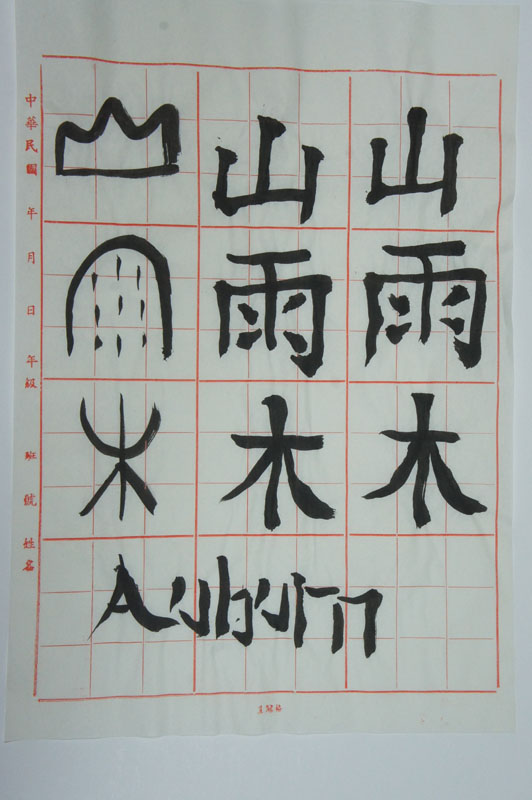 中華民國 年 月 日 年級 班 號 姓名
山 山 山
雨 雨 雨
木 木 木
Auburn